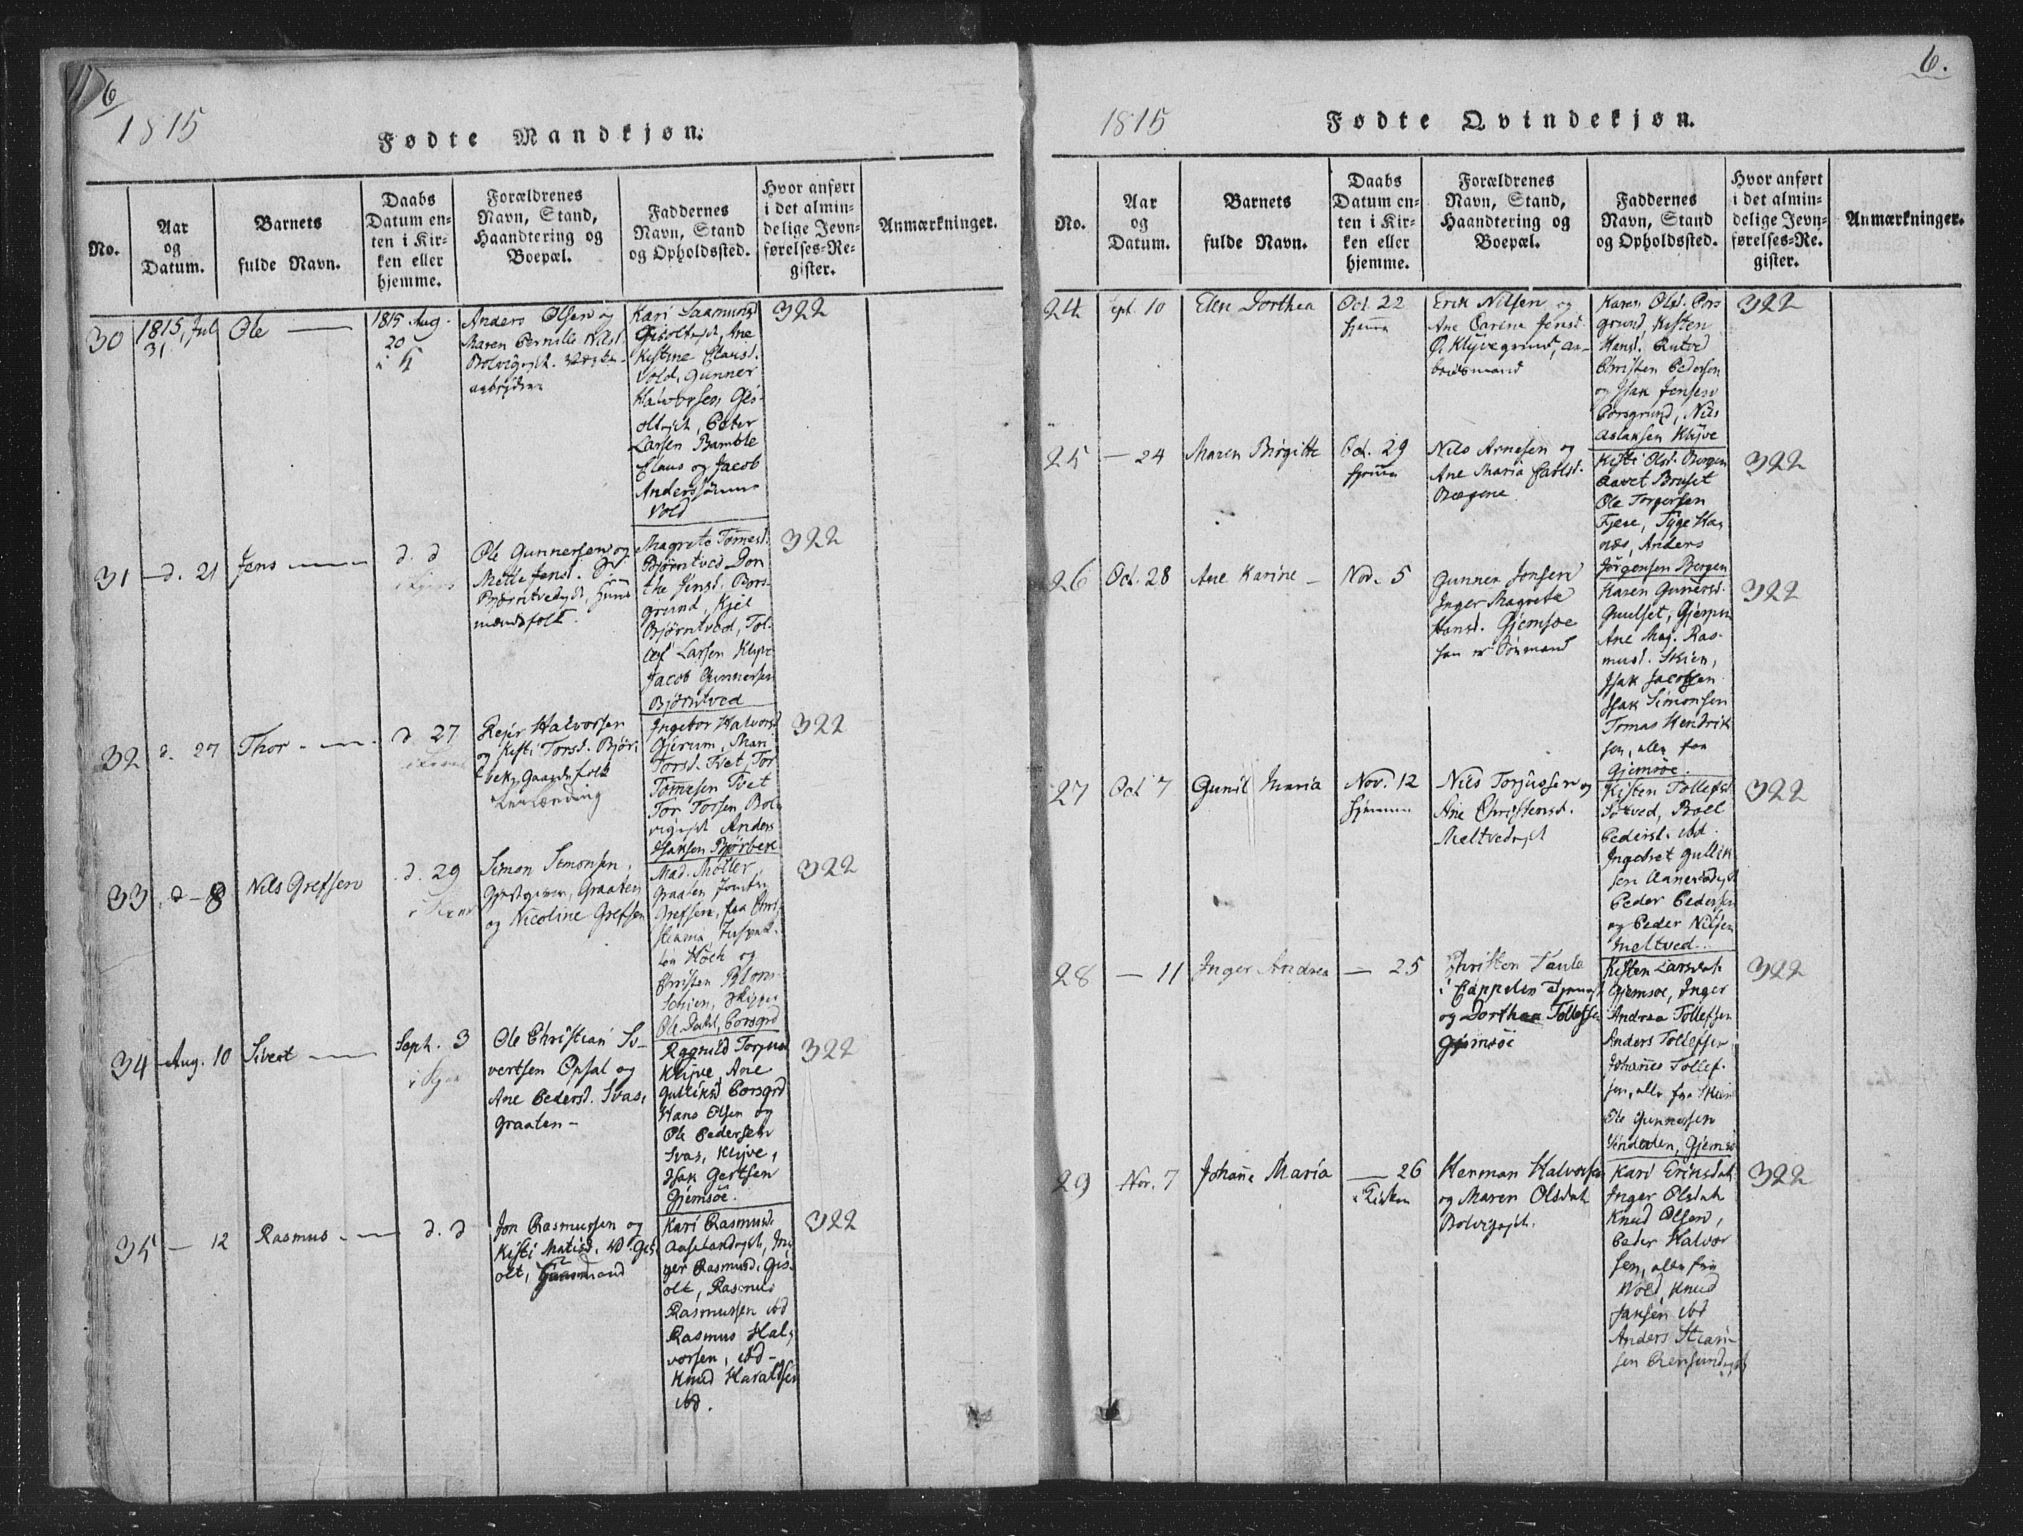 6
1815
Fødte Mandkjøn.
No.
Aar
og
Datum.
Barnets
fulde Navn.
Daabs
Datum en-
ten i Kir-
ken eller
hjemme.
Forældrenes
Navn, Stand,
Haandtering og
Boepæl.
Faddernes
Navn, Stand
og Opholdssted.
Hvor anført
i det almin-
delige Jevn-
førelses-Re-
gister.
Anmærkninger.
30
1815, Jul
31
Ole
1815 Aug.
20
i K
Anders Olsen og
Maren Pernille Nilsd.
Bolvigejet.
arbejdere
Kari Saamunds
Gisoltejet, Ane
Kistine Clausd.
Vold, Gunner
Halvorsen Gis-
oltejet, Peter
Larsen Bamble
Claus og Jacob
Anderssønner
Vold
322
31
d. 21
Jens
d. d
Ole Gunnersen og
Mette Jensd.
Bjørntvedejet, Huus
mandsfolk.
Magrete Tomesd.
Bjørntved Dor
the Jensd. Pors-
grund, Kjel
Bjørntved, Tol-
lef Larsen Klyve
Jacob Gunnersen
Bjørntved
322
32
d. 27
Thor
d 27
Rejer Halvorsen
og Kisti Torsd. Bjør-
bek, Gaardsfolk
Ingebor Halvorsd
Gjerum, Mari
Torsd. Tvet, Tor
Tomesen Tvet
Tor Torsen, Bol-
vigejet Anders
Isaksen Bjørbek
322
33
d - 8
Nils Grefsen
d. 29
Simon Simonsen,
Gjestgiver, Graaten
og Nicoline Grefsen
Mad. Møller,
Graaten Jomfru
Grefsen, fra Chri-
stiania, Inspek-
tør Høch og
Christen Blom
Schien, Skipper
Ole Dahl, Porsgrd
322
34
Aug. 10
Sivert
Septr. 3
i Kjer
Ole Christian Si-
vertsen Opsal og
Ane Pedersd. Svas,
Graaten -
Ragnild Torjus
Klyve, Ane
Gulliksd Porsgrd
Hans Olsen og
Ole Pedersen
Svas, Klyve,
Isak Gertsen
Gjemsøe.
322
35
- 12
Rasmus
d. d
Jon Rasmussen og
Kisti Matisd. Gis-
olt, Huusmand
Kari Rasmusd.
Aaselandejet, In-
ger Rasmusd. Gis-
olt, Rasmus
Rasmussen ibd
Rasmus Hal-
vorsen, ibd -
Knud Haraldsen
ibd.
322
6.
1815
Fødte Qvindekjøn.
No.
Aar
og
Datum.
Barnets
fulde Navn.
Daabs
Datum en-
ten i Kir-
ken eller
hjemme.
Forældrenes
Navn, Stand,
Haandtering og
Boepæl.
Faddernes
Navn, Stand
og Opholdssted.
Hvor anført
i det almin-
delige Jevn-
førelses-Re-
gister.
Anmærkninger.
24
Sept. 10
Elen Dorthea
Oct. 22
hjemme
Erik Nilsen og
Ane Carine Jensd.
Klyvegrund, ar-
beidsmand
Karen Olsd. Pors
grund, Kisten
Hansd.
Christen Pedersen
og Isak Jensen
Porsgrund, Nils
Aslaksen Klyve
322
25
- 24
Maren Birgitte
Oct. 29
hjemme
Nils Arnesen og
Ane Maria Carlsd.
Kisti Olsd. Borgen
Ole Torgersen
Fjære, Tyge
Anders
Jørgensen Bergen
322
26
Oct. 28
Ane Karine
Nov. 5
Gunner Jonsen
Inger Magrete
Hansd. Gjemsøe
han er Sømand
Karen Gunersd.
Gulset, Gjerpen
Ane Mag. Ras-
musd. Skien,
Isak Jacobsen
Isak Simonsen
Tomas Hendrik
sen, alle fra
Gjemsøe.
322
27
Oct 7
Gunil Maria
Nov. 12
hjemme
Nils Torjussen og
Ane Christensd.
Meltvedejet
Kisten Tollefsd.
Boel
Pedersd. ibd.
Ingebret Gullik-
sen
Peder Pedersen
og Peder Nilsen
Meltved.
322
28
- 11
Inger Andrea
- 25
Christen
i Cappelen
og Dorthea Tollefsen
Gjemsøe
Kisten Larsdat.
Gjemsøe, Inger
Andrea Tollefsen
Anders Tollefsen
Johannes Tollef-
sen, alle fra Skien
Ole Gunnersen
Gjemsø
322
29
Nov. 7
Johanne Maria
- 26
i Kirken
Herman Halvorsen
og Maren Olsdat.
Bolvigejet.
Kari Eriksdat.
Inger Olsdat.
Knud Olsen,
Peder Halvor
sen, alle fra
Vold, Knud
Jansen ibd
Anders
sen
322